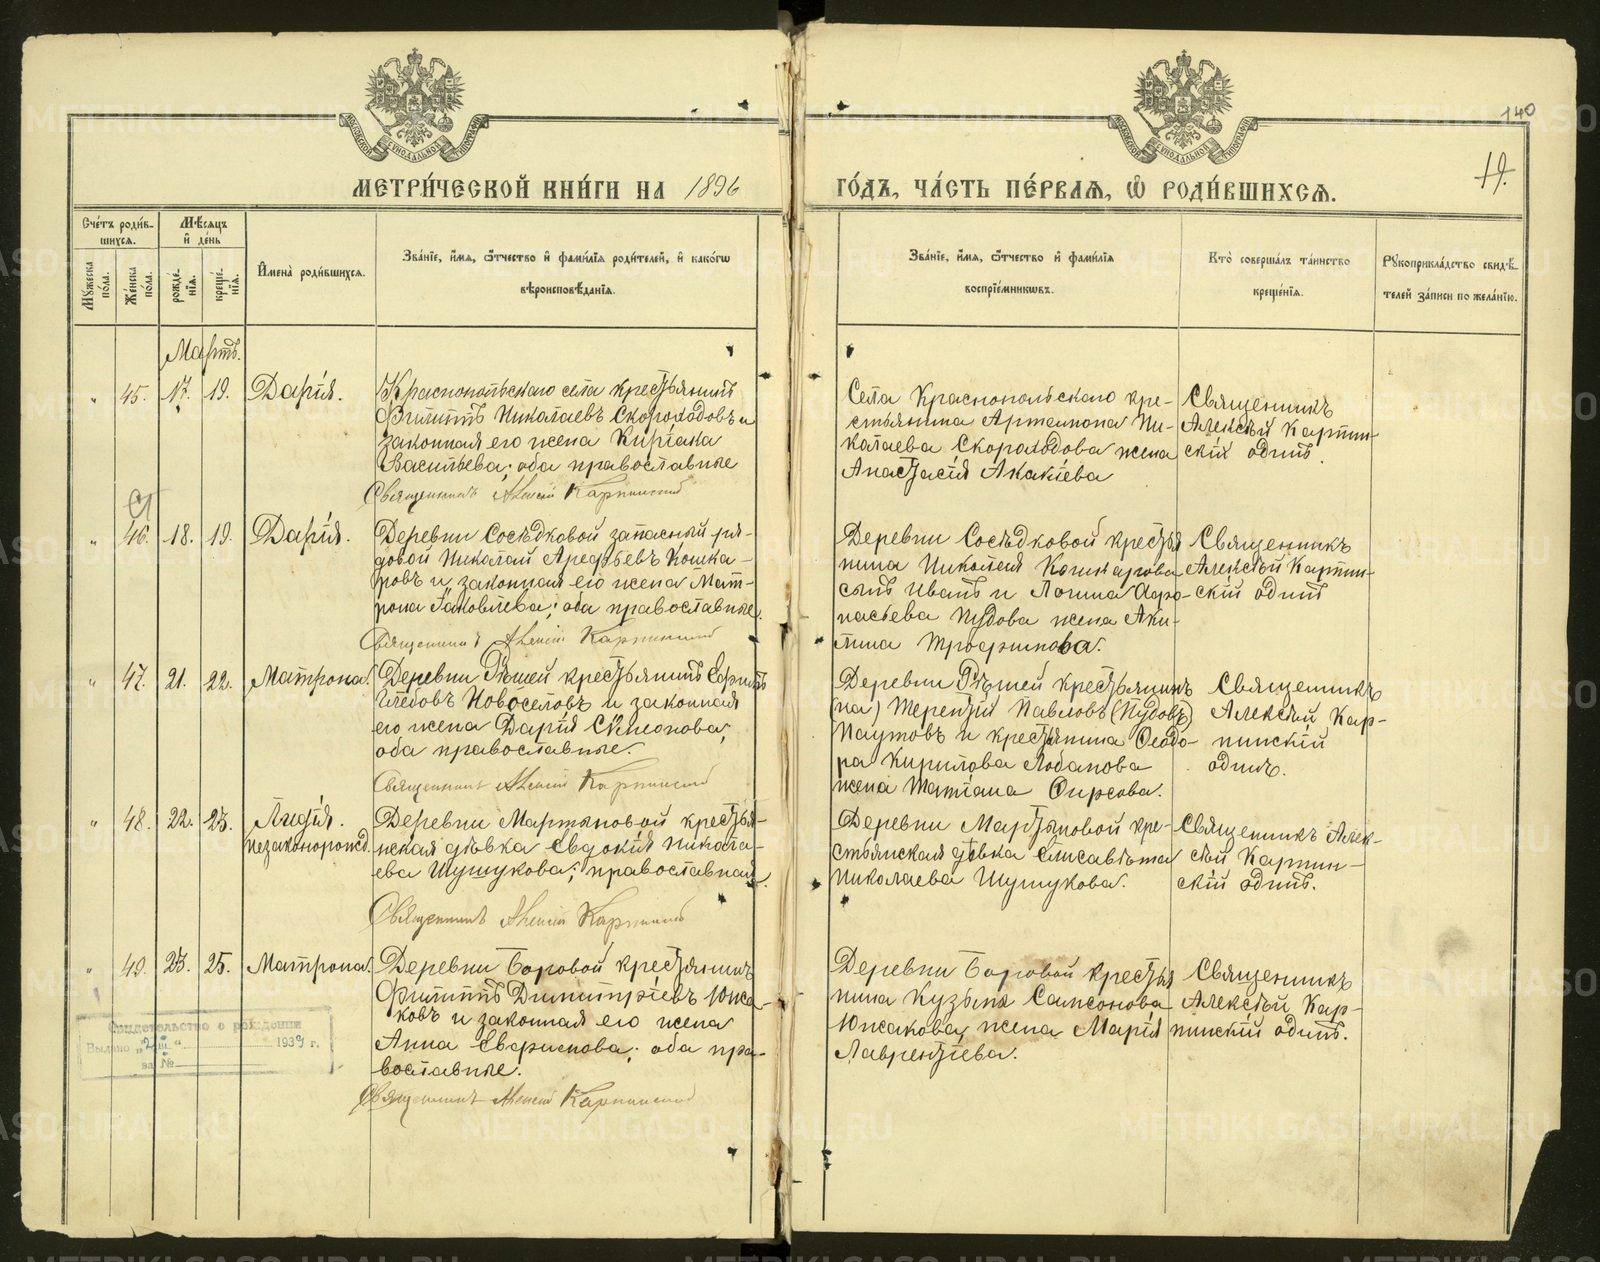 140
19.
МЕТРИ́ЧЕСКОЙ КНИ́ГИ НА 1896
ГО́ДЪ, ЧА́СТЬ ПЕ́РВАѦ, Ѿ РОДИ́ВШИХСѦ.
Сче́тъ роди́в-
шихся.
Мѣ́сяцъ
и҆ де́нь
Мꙋ́жеска
по́ла.
Же́нска
по́ла.
рожде́-
нїя.
креще́-
нїя.
И҆мена̀ роди́вшихся.
Зва́нїе, и҆́мя, ѻ҆́тчество и҆ фами́лїя роди́телей, и҆ како́гѡ
вѣроисповѣ́данїя.
Зва́нїе, и҆́мя, ѻ҆́тчество и҆ фами́лїя
воспрїе́мникѡвъ.
Кто̀ соверша́лъ та́инство
креще́нїя.
Рꙋкоприкла́дство свидѣ́-
телей за́писи по жела́нїю.
Мартъ.
" 45. 17. 19. Дарія.
Краснопольскаго села крестьянинъ
Филиппъ Николаевъ Скороходовъ и
законная его жена Киріака
Васильева; оба православные
Священникъ Алексій Карпинскій
Села Краснопольскаго кре-
стьянина Артамона Ни-
колаева Скороходова жена
Анастасія Акакіева
Священникъ
Алексѣй Карпин-
скій одинъ
" 46. 18. 19. Дарія.
Деревни Сосѣдковой запасный ря-
довой Николай Арефьевъ Кошка-
ровъ и законная его жена Мат-
рона Іаковлева; оба православные.
Священникъ Алексій Карпинскій
Деревни Сосѣдковой крестья
нина Николая Кошкарова
сынъ Иванъ и Логина Афо-
насьева Пудова жена Аки-
лина Трофимова.
Священникъ
Алексѣй Карпин-
скій одинъ
" 47. 21. 22. Матрона.
Деревни Рѣшей крестьянинъ Ефимъ
Глебовъ Новоселовъ и законная
его жена Дарія Симеонова;
оба православные.
Священникъ Алексій Карпинскій
Деревни Рѣшей крестьянинъ
(на) Терентій Павловъ (Пудовъ)
Паутовъ и крестьянина Ѳеодо-
ра Кирилова Лобанова
жена Татіана Фирсова.
Священникъ
Алексѣй Кар-
пинскій
одинъ.
" 48. 22. 23. Лидія.
незаконорожд.
Деревни Мартыновой крестья-
нская дѣвка Евдокія Никола-
ева Шушукова; православная.
Священникъ Алексій Карпинскій
Деревни Мартыновой кре-
стьянская дѣвка Елисавѣта
Николаева Шушукова.
Священникъ Алек-
сѣй Карпин-
скій одинъ.
" 49. 23. 25. Матрона.
Деревни Боровой крестьянинъ
Филиппъ Димитріевъ Южа-
ковъ и законная его жена
Анна Евфимова; оба пра-
вославные.
Священникъ Алексій Карпинскій
Деревни Боровой крестья
нина Кузьмы Самсонова
Южакова жена Марія
Лаврентіева.
Священникъ
Алексѣй Кар-
пинскій одинъ.
Свидетельство о рождении
Выдано " 2 " III 1939 г.
за №
METRIKI.GASO-URAL.RU